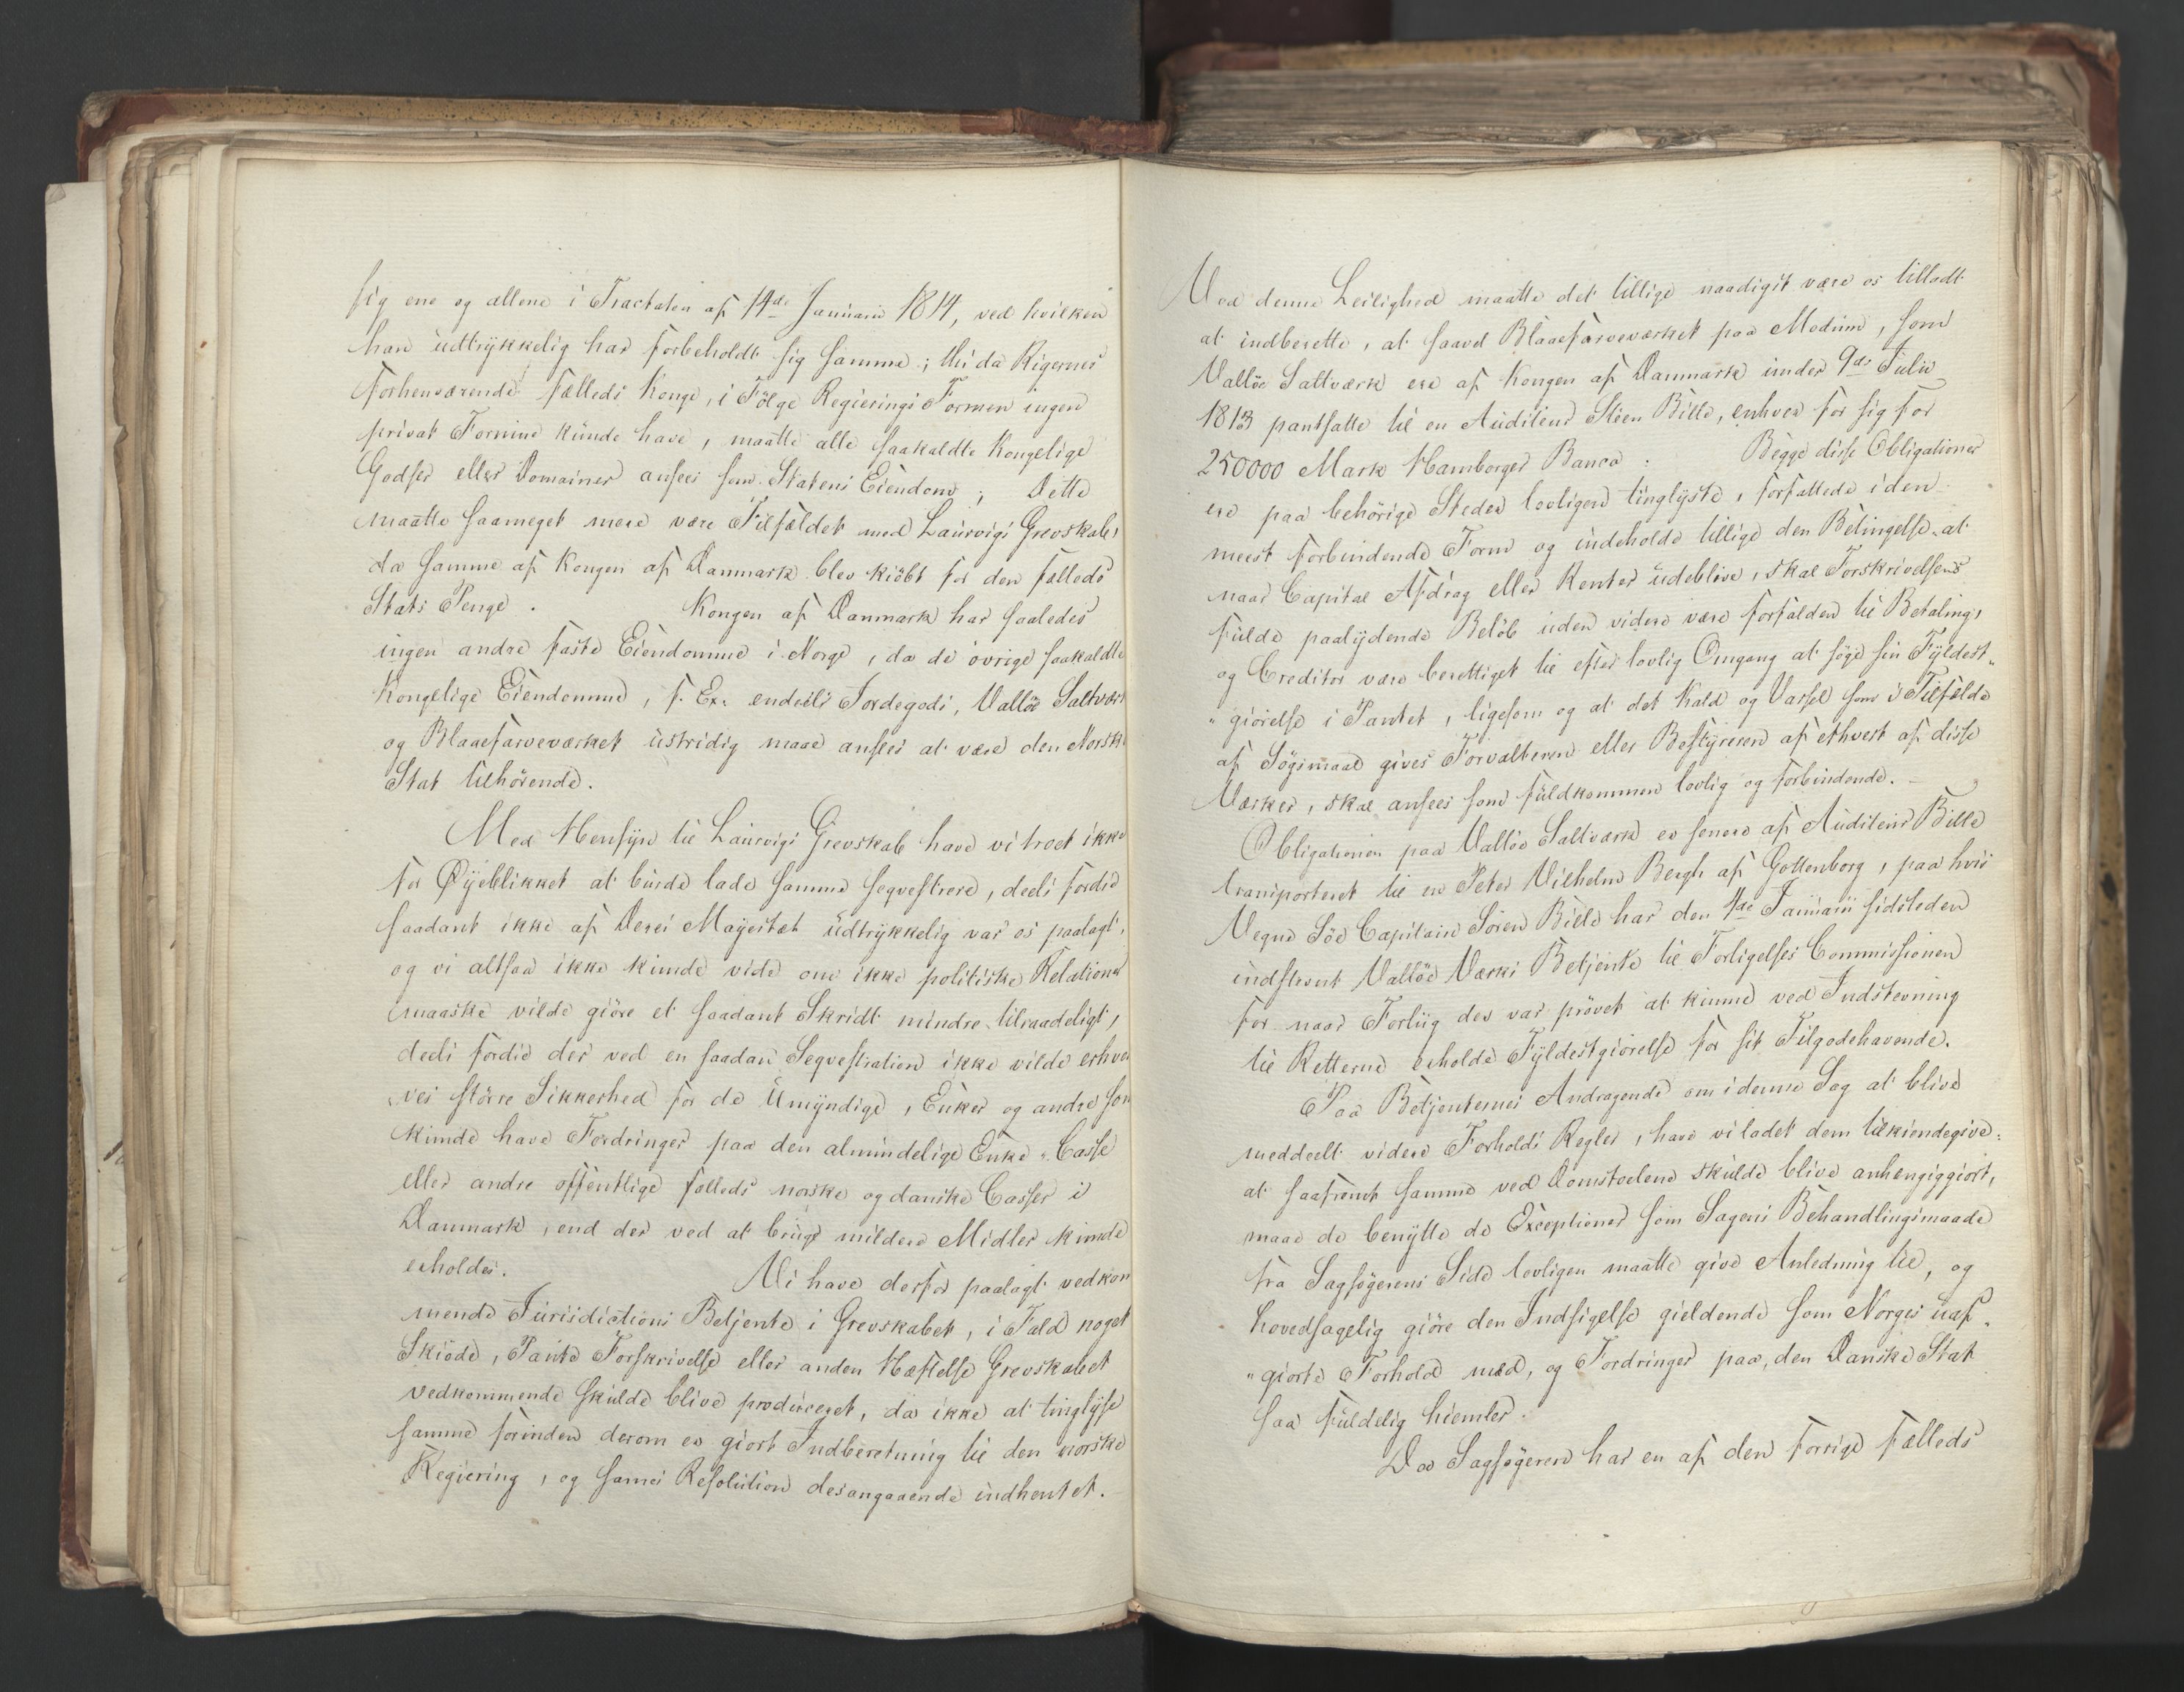 sig ene og allene i Tractaten af 14de Januarii 1814, ved hvilken
han udtrykkelig har forbeholdt sig samme; thi da Rigernes
forhenværende fælleds Konge, i Fölge Regierings Formen ingen
privat Formue kunde have, maatte alle saakaldte Kongelige
Godser eller Domainer ansees som Statens Eiendom; Dette
maatte saameget mere være Tilfældet med Laurvigs Grevskab,
da samme af Kongen af Danmark blev kiöbt for den fælleds
Stats Penge. Kongen af Danmark har saaledes
ingen andre faste Eiendomme i Norge, da de övrige saakaldte
Kongelige Eiendomme, f. Ex. endeels Jordegods, Vallöe Saltværk
og Blaaefarveværket ustridig maae ansees at være den Norske
Stat tilhörende.
Med Hensyn til Laurvigs Grevskab have vi troet ikke
for Øyeblikket at burde lade samme seqvestrere, deels fordie
saadant ikke af Deres Mayestæt udtrykkelig var os paalagt,
og vi altsaa ikke kunde vide om ikke politiske Relationer
maaske vilde giöre et saadant Skridt mindre tilraadeligt,
deels fordie der ved en saadan Seqvestration ikke vilde erhver
ves större Sikkerhed for de Umyndige, Enker og andre som
kunde have Fordringer paa den almindelige Enke-Casse
eller andre offentlige fælleds norske og danske Casser i
Danmark, end der ved at bruge mildere Midler kunde
erholdes. Vi have derfor paalagt vedkom
mende Jurisdictions Betjente i Grevskabet, i Fald noget
Skiöde, Pante Forskrivelse eller anden Hæftelse Grevskabet
vedkommende skulde blive produceret, da ikke at tinglyse
samme forinden derom er giort Indberetning til den norske
Regiering, og sammes Resolution desangaaende indhentet.
Ved denne Leilighed maatte det tillige naadigst være os tilladt
at indberette, at saavel Blaaefarveværket paa Modum, som
Vallöe Saltværk ere af Kongen af Danmark under 9de Julii
1813 pantsatte til en Auditeur Steen Bille, enhver for sig for
250000 Mark Hamborger Banco: Begge disse Obligationer
ere paa behörige Steder lovligen tinglyste, forfattede i den
meest forbindende Form og indeholde tillige den Betingelse, at
naar Capital Afdrag eller Renter udeblive, skal Forskrivelsens
fulde paalydende Belöb uden videre være forfalden til Betaling,
og Creditor være berettiget til efter lovlig Omgang at söge sin Fyldest„
„giörelse i Pantet, ligesom og at det Kald og Varsel som i Tilfælde
af Sögsmaal gives Forvalteren eller Bestyreren af ethvert af disse
Værker, skal ansees som fuldkommen lovlig og forbindende.
Obligationen paa Vallöe Saltværk er senere af Auditeur Bille
transporteret til en Peter Vilhelm Bergh af Gottenborg, paa hvis
Vegne Söe Capitain Sören Bille har den 4de Januarii sidstleden
indstevnt Vallöe Værks Betjente til Forligelses Commissionen
for naar Forliig der var prövet at kunne ved Indstevning
til Retterne erholde Fyldestgiörelse for sit Tilgodehavende.
Paa Betjenternes Andragende om i denne Sag at blive
meddeelt videre Forholds Regler, have vi ladet dem tilkiendegive:
at saafremt samme ved Domstolene skulde blive anhengiggiort,
maae de benytte de Exceptioner som Sagens Behandlingsmaade
fra Sagsögerens Side lovligen maatte give Anledning til, og
hovedsagelig giöre den Indsigelse gieldende som Norges uaf„
„giorte Forhold med, og Fordringer paa, den Danske Stat
saa fuldelig hiemler.
Da Sagsögeren har en af den forrige fælleds